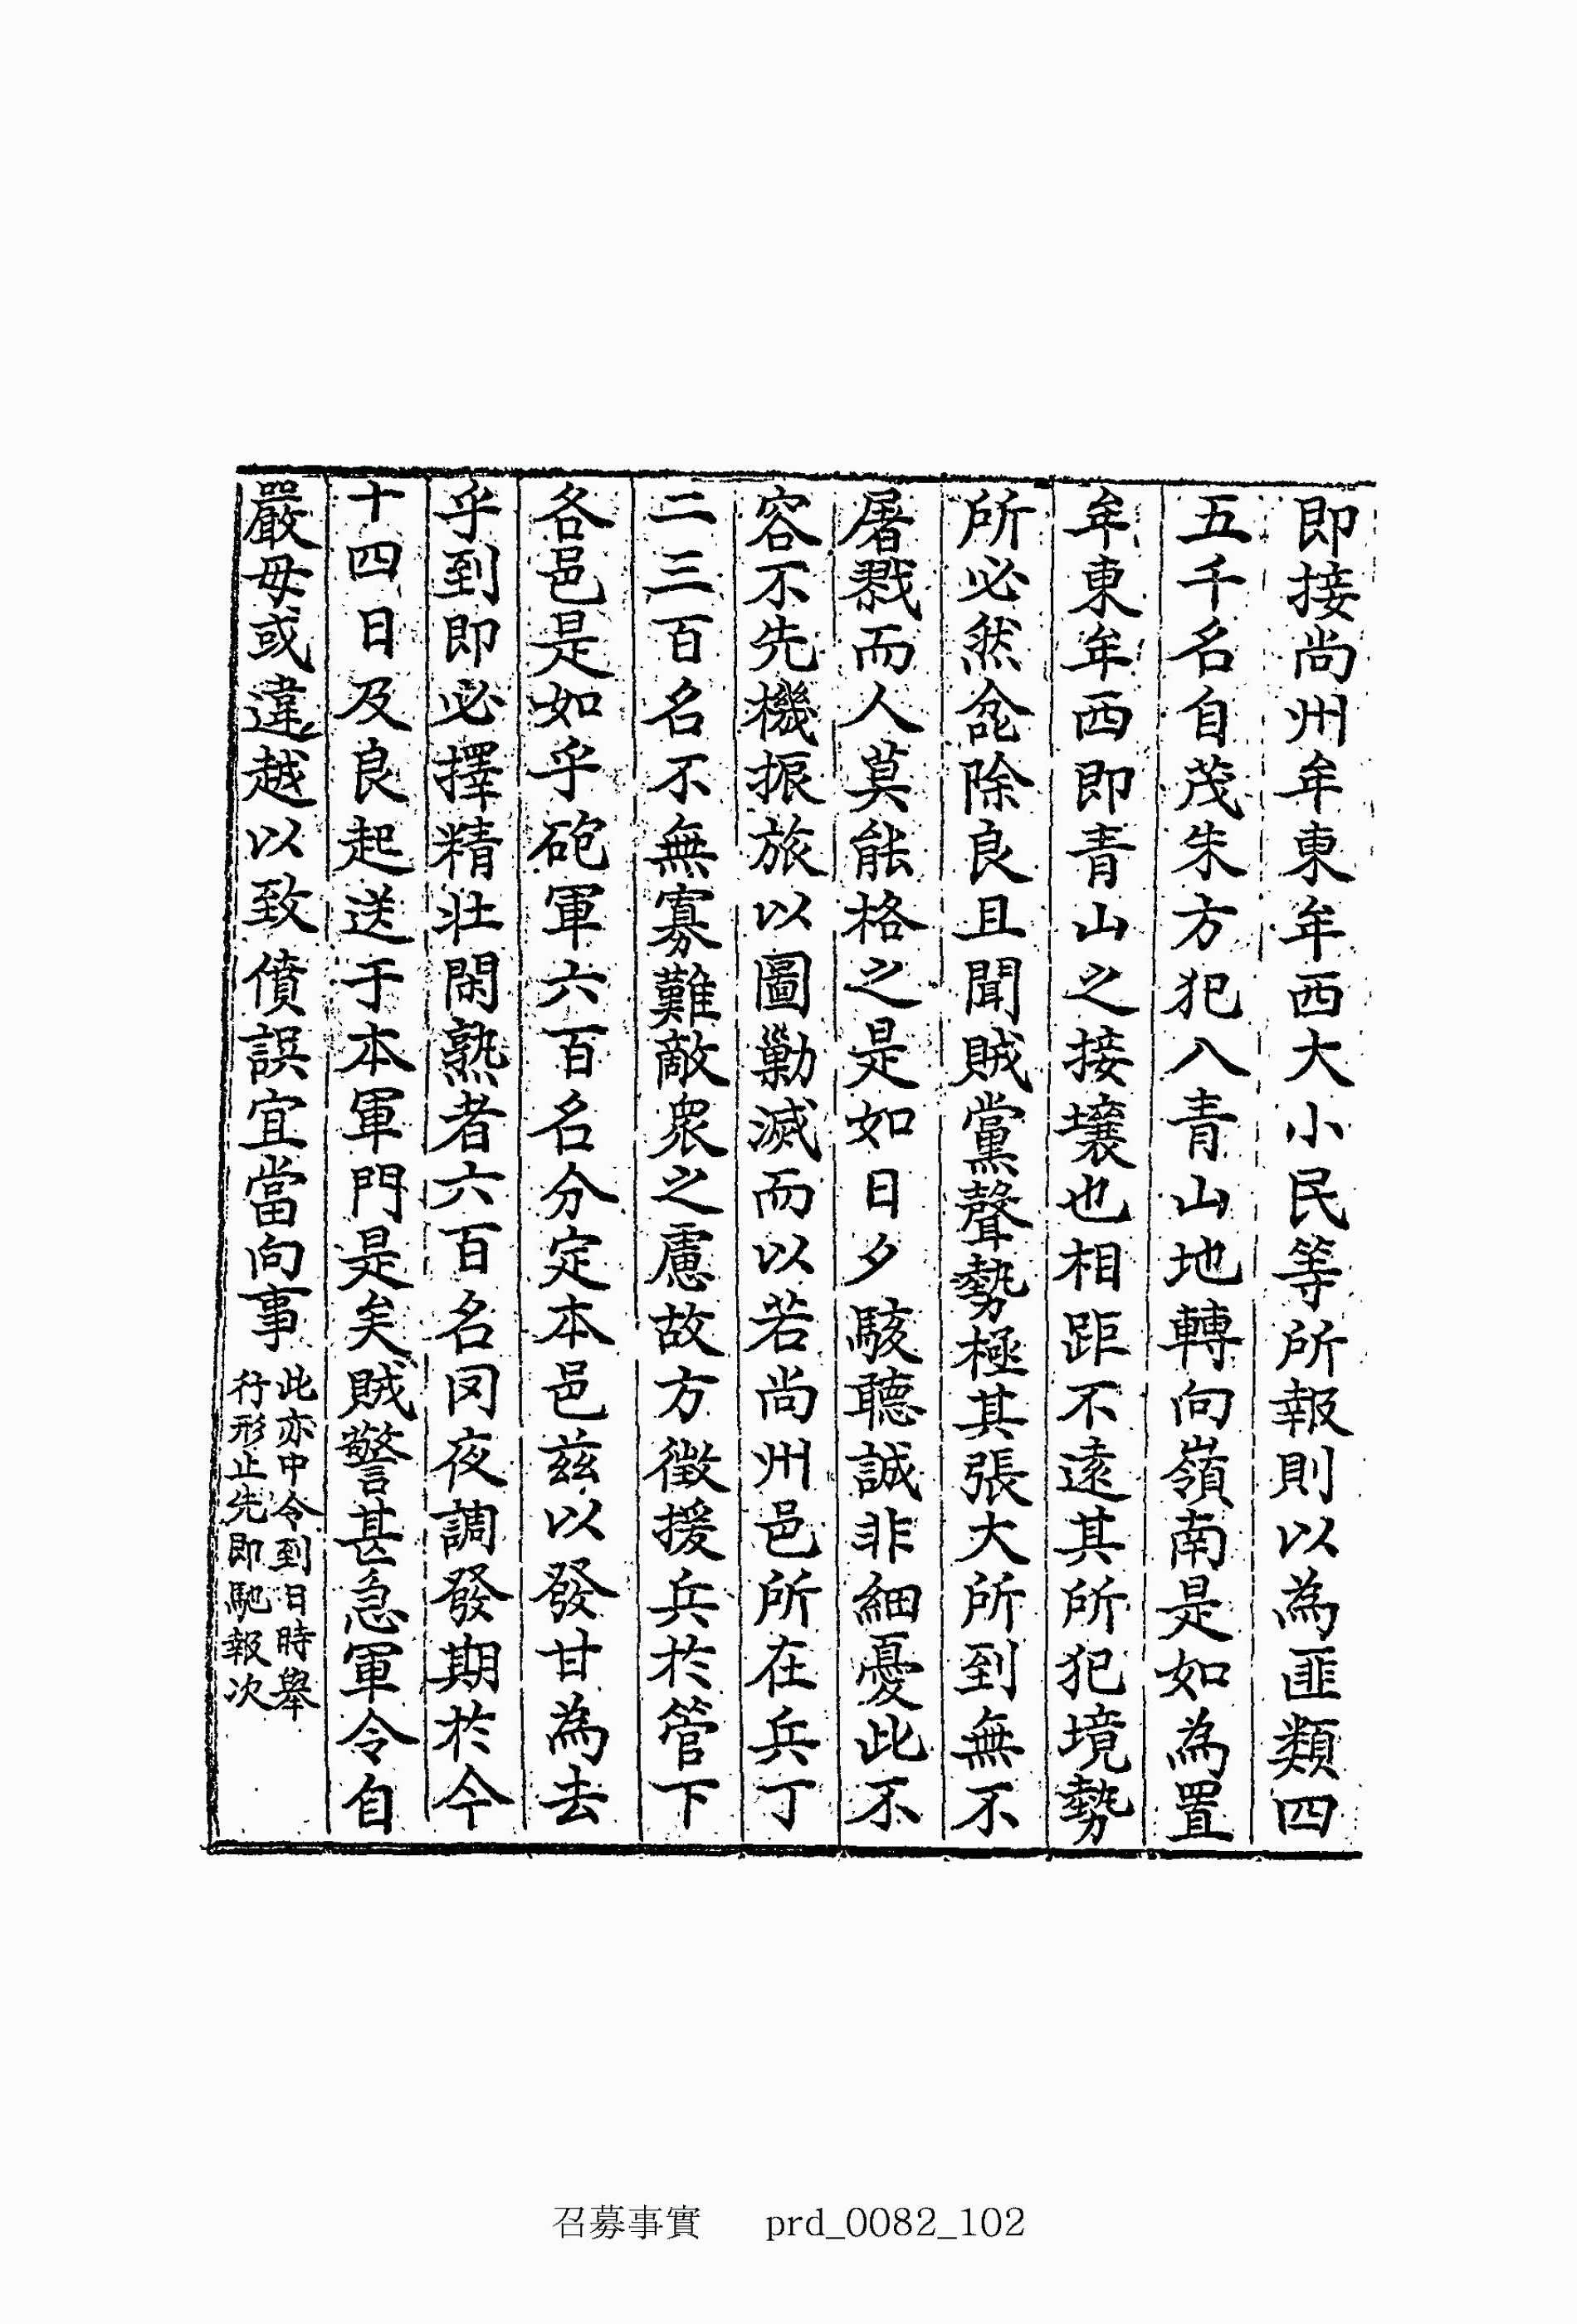 即接尚州牟東牟西大小民等所報則以為匪類四
五千名自茂朱方犯入青山地轉向嶺南是如為置
牟東牟西即青山之接壤也相距不遠其所犯境勢
所必然忿除良且聞賊黨聲勢極其張大所到無不
屠戮而人莫能格之是如日夕駭聽誠非細憂此不
容不先機振旅以圖勦滅而以若尚州邑所在兵丁
二三百名不無寡難敵衆之慮故方徵援兵於管下
各邑是如乎砲軍六百名分定本邑玆以發甘為去
乎到即必擇精壯閑熟者六百名罔夜調發期於今
十四日及良起送于本軍門是矣賊警甚急軍令自
嚴毋或違越以致僨誤宜當向事
此亦中令到日時擧
行形止先即馳報次
召募事實 prd_0082_102